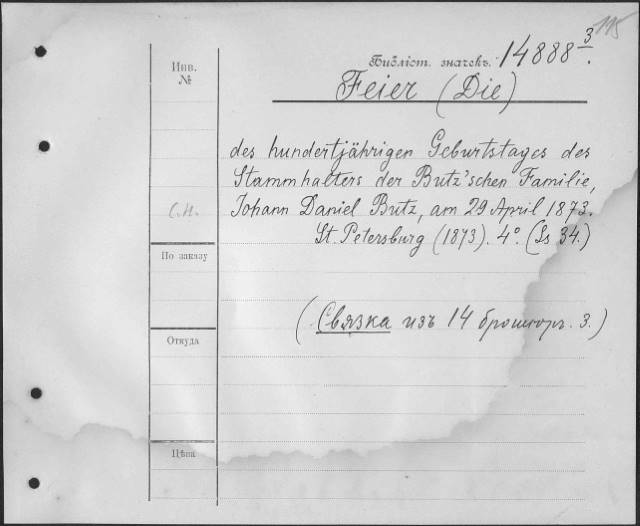 195
Библіот. значекъ. 14888 3.
Инв.
№
Feier (Die)
des hundertjährigen Geburtstages des
Stammhalters der Butz'schen Familie,
С.Н.
Johann Daniel Butz, am 29 April 1873.
St. Petersburg (1873). 4°. (Ss 34.)
По заказу
(Связка изъ 14 брошюръ. 3.)
Откуда
Цѣна